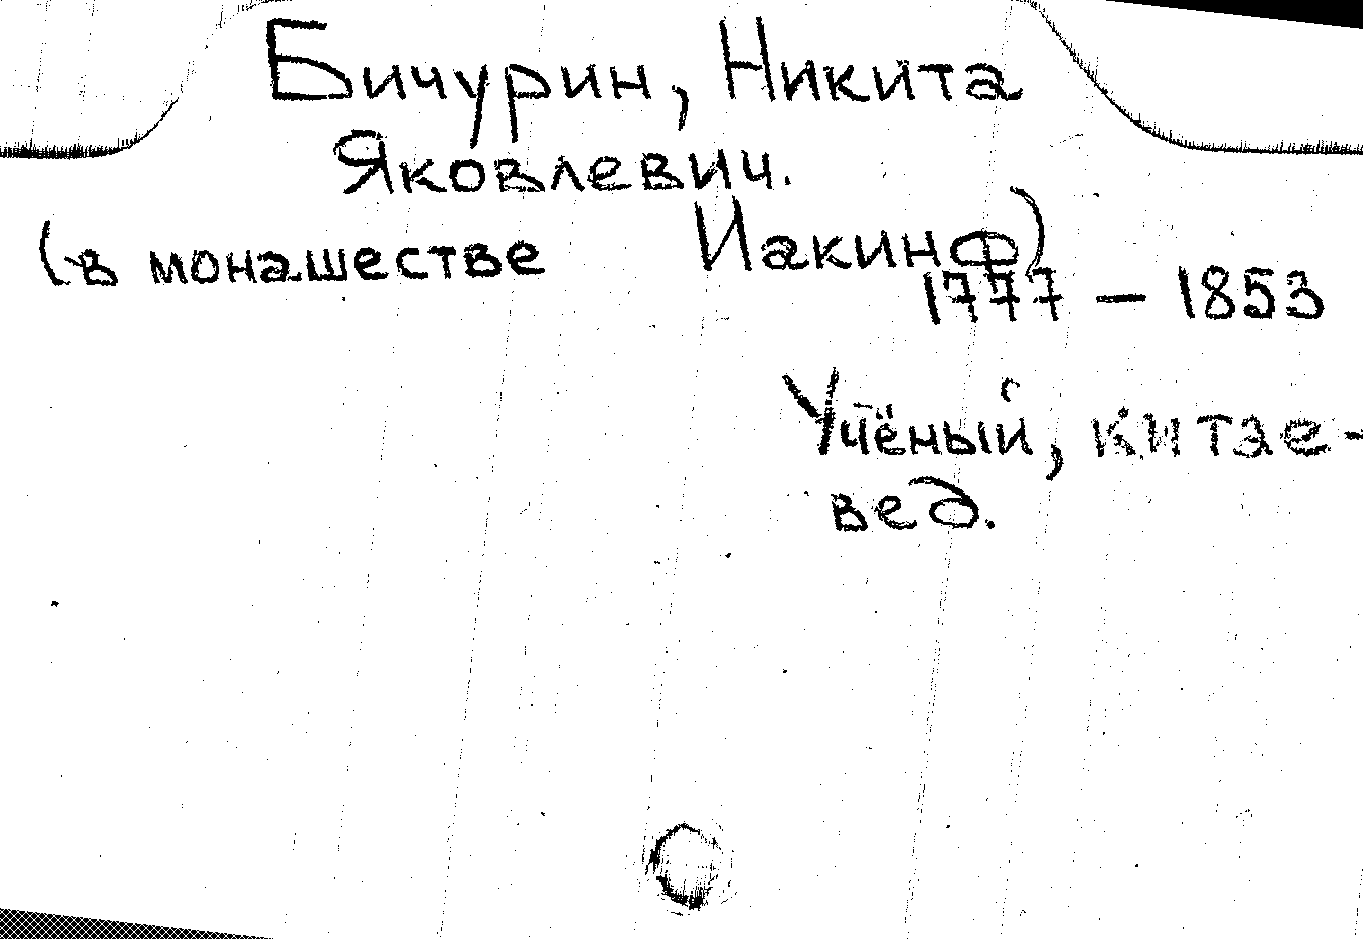 Бичурин, Никита
Яковлевич.
(в монашестве Иакинф)
1777 – 1853
Учёный, китае-
вед.